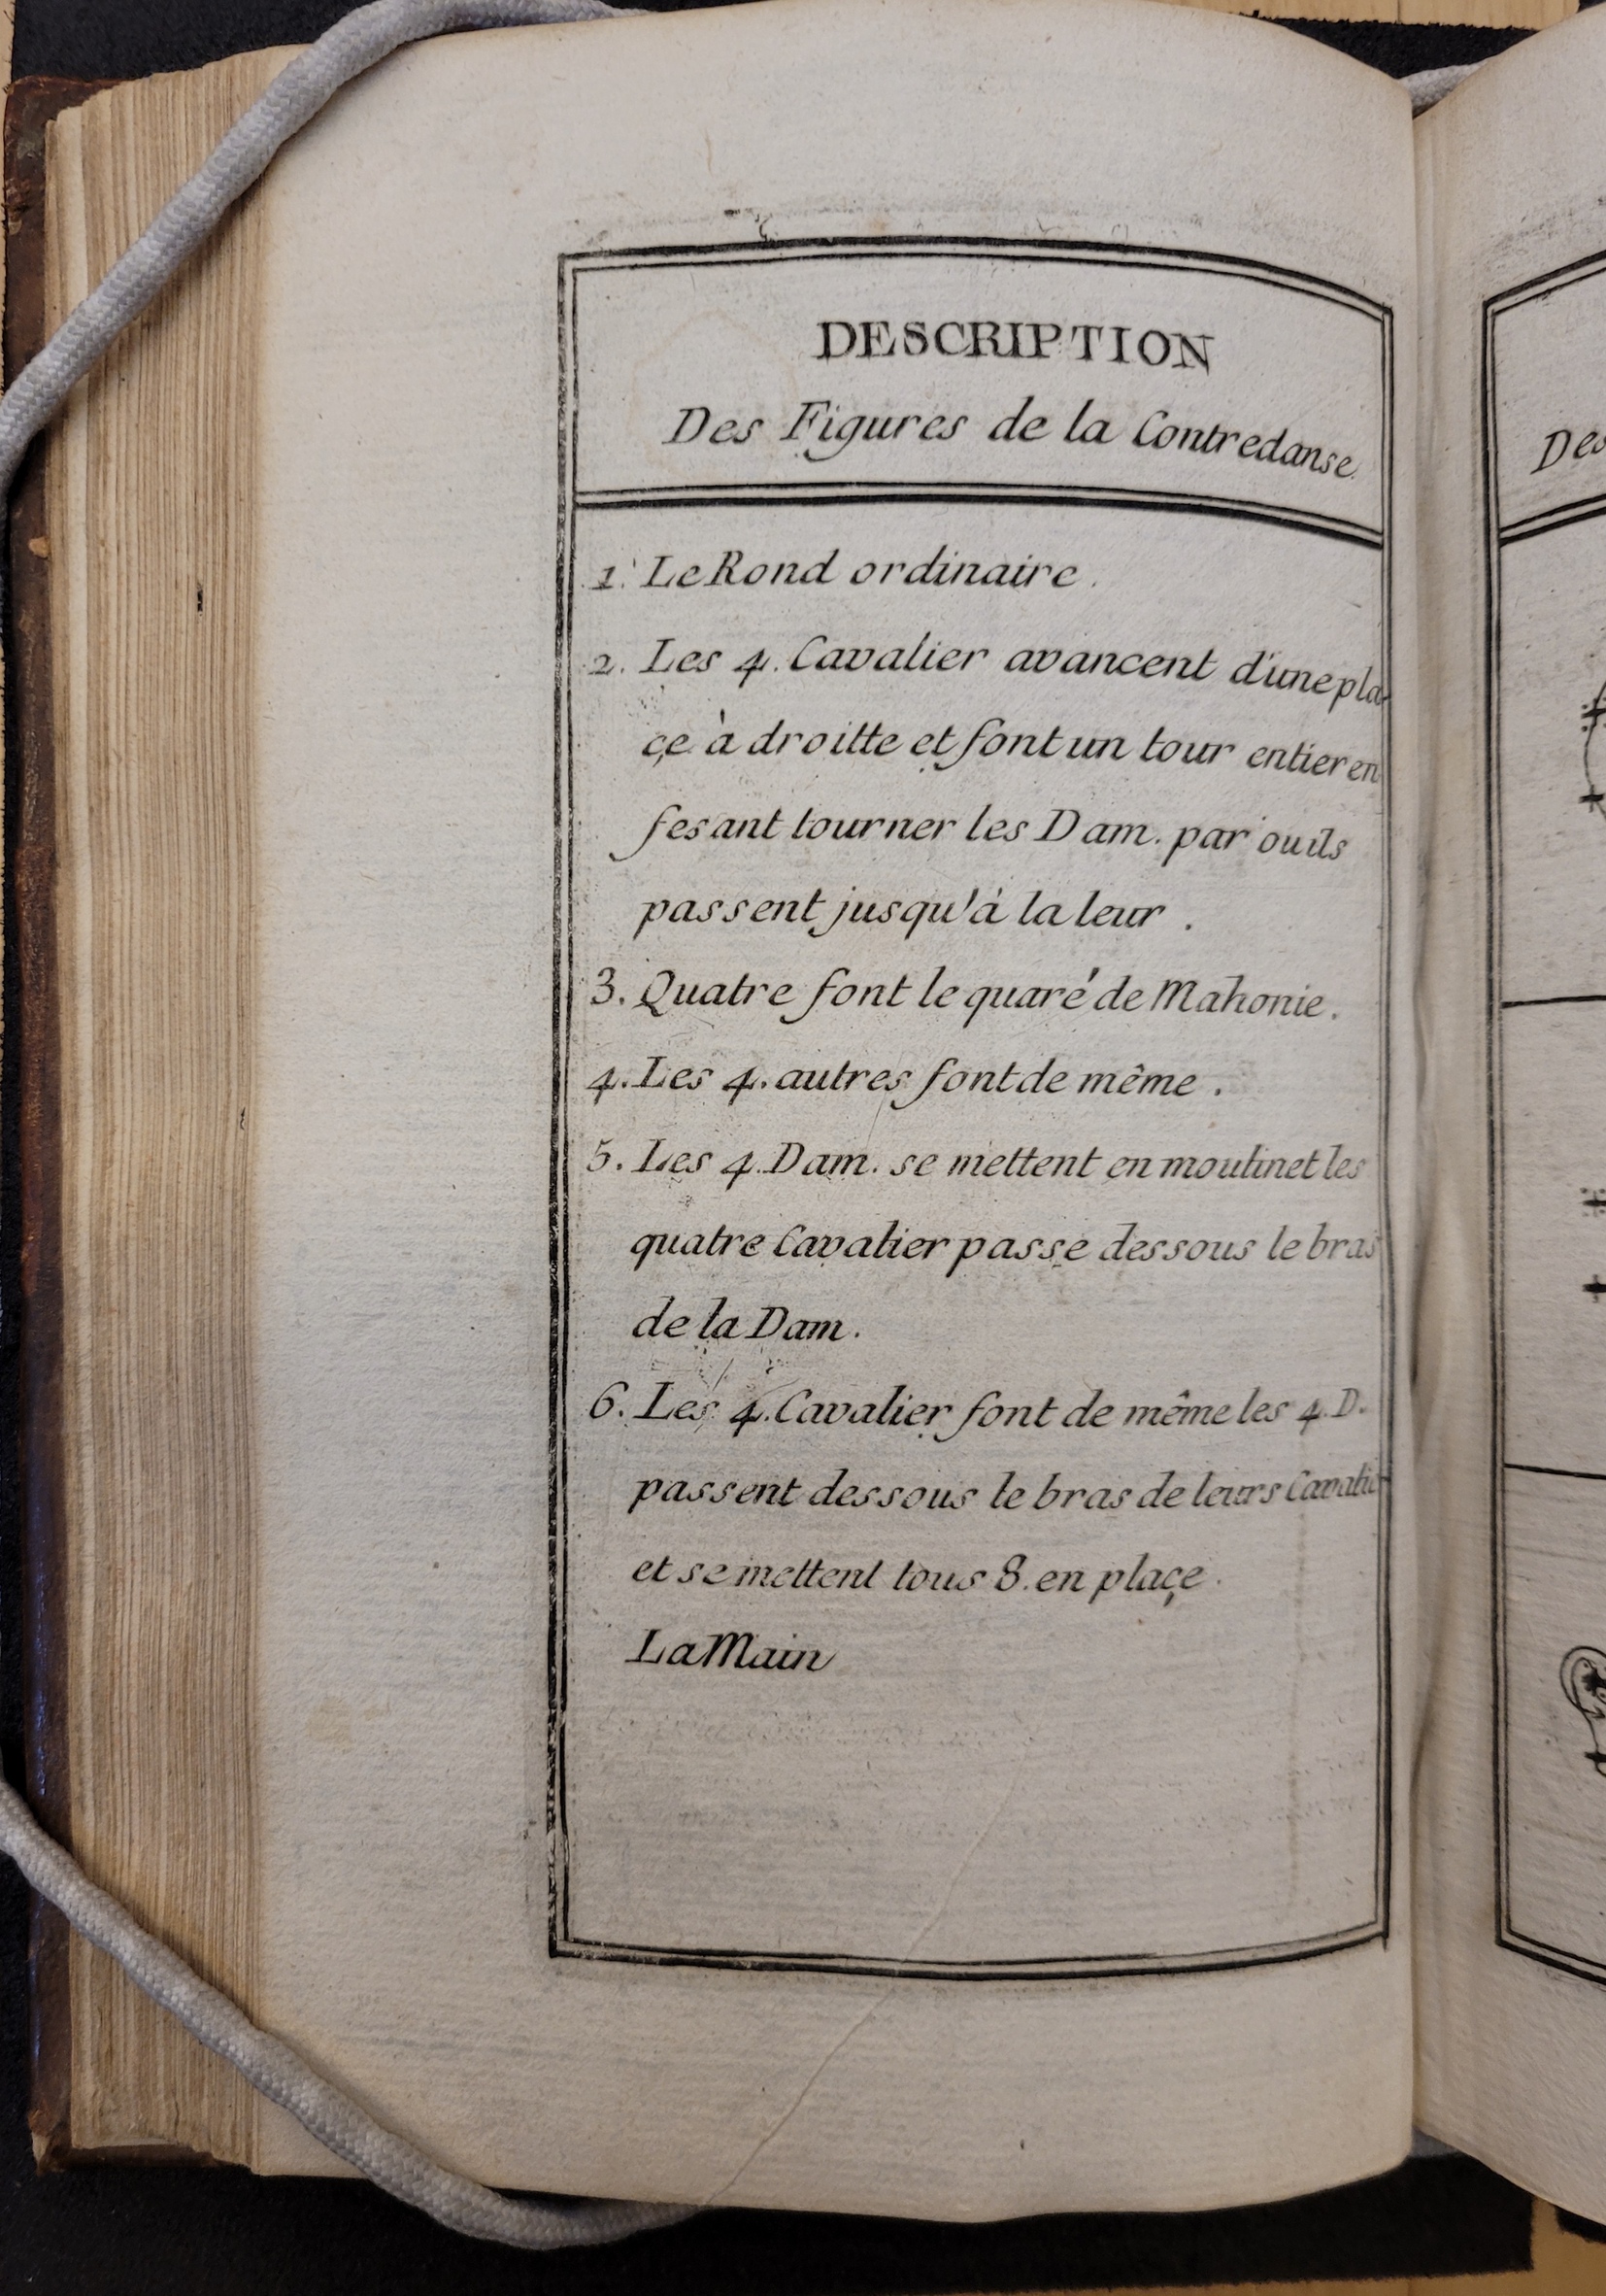 DESCRIPTION
Des Figures de la Contredanse
1. Le Rond ordinaire.
2. Les 4. Cavalier avancent d'une pla-
çe à droitte et font un tour entier en
fesant tourner les Dam. par ou ils
passent jusqu'à la leur.
3. Quatre font le quaré de Mahonie.
4. Les 4. autres font de même.
5. Les 4. Dam. se mettent en moulinet les
quatre Cavalier passe dessous le bras
de la Dam.
6. Les 4. Cavalier font de même les 4. D.
passent dessous le bras de leurs Cavalier
et se mettent tous 8. en plaçe.
La Main
Des